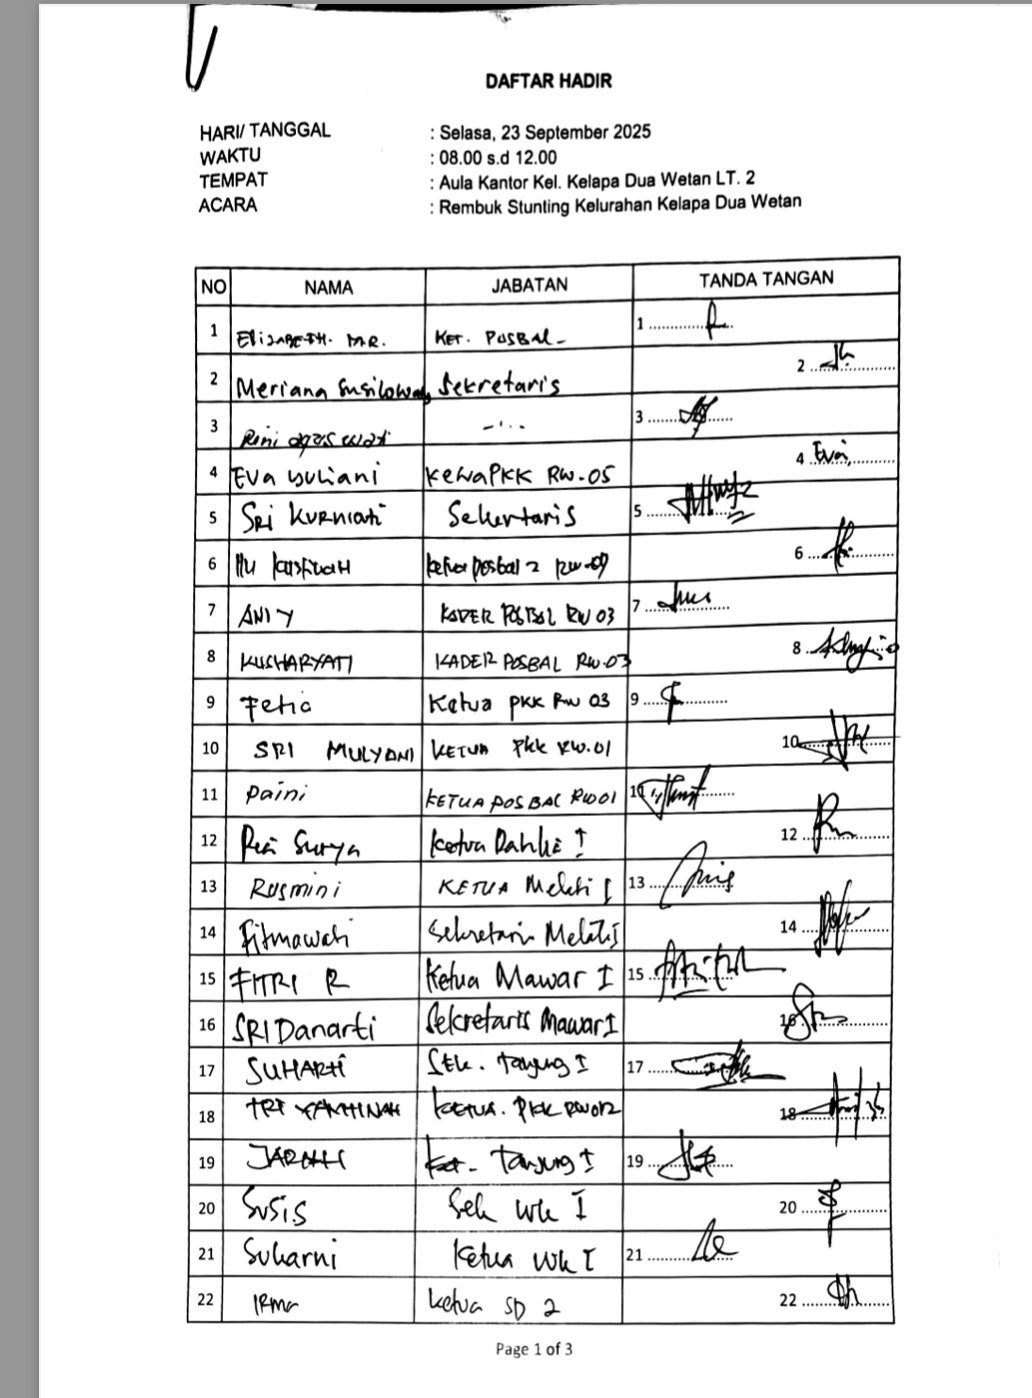 DAFTAR HADIR
HARI/ TANGGAL : Selasa, 23 September 2025
WAKTU : 08.00 s.d 12.00
TEMPAT : Aula Kantor Kel. Kelapa Dua Wetan LT. 2
ACARA : Rembuk Stunting Kelurahan Kelapa Dua Wetan
NO NAMA JABATAN TANDA TANGAN
1 Elisabeth. M.R. Ket. Posbal- 1
2 Meriana Susilowati Sekretaris 2
3 Rini agus wati -''- 3
4 Eva yuliani Ketua PKK RW.05 4 Eva,
5 Sri Kurniati Sekertaris 5
6 ketua posbal 2 RW-09 6
7 ANIY KADER POSBAL RW 03 7
8 KUSHARYATI KADER POSBAL RW.03 8
9 Fetia Ketua PKK RW 03 9
10 SRI MULYANI KETUA PKK RW.01 10
11 Paini KETUA POSBAL RW01 11
12 Surya Ketua Dahlia I 12
13 Rusmini KETUA Melati I 13
14 Fitmawati Sekretaris Melati I 14
15 FITRI R Ketua Mawar I 15
16 SRI Danarti Sekretaris Mawar I 16
17 SUHARTI Sek. Tanjung I 17
18 TRI YAMTINAH KETUA. PKK RW012 18
19 JARIAH Ket. Tanjung I 19
20 Susis Sek Wk I 20
21 Suharni Ketua Wk I 21
22 IRMA Ketua SD 2 22
Page 1 of 3